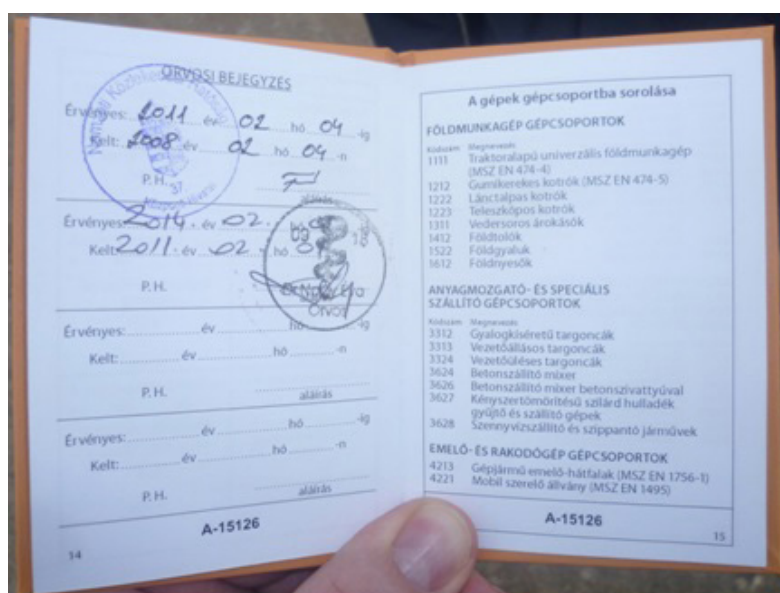 ORVOSI BEJEGYZÉS
Érvényes: 2011 év 02 hó 04 -ig
Kelt: 2008 év 02 hó 04 -n
P. H.
aláírás
Érvényes: 2014 év 02
Kelt: 2011 év 02 hó
P. H.
Orvos
Érvényes: év hó -ig
Kelt: év hó -n
P. H.
aláírás
Érvényes: év hó -ig
Kelt: év hó -n
P. H.
aláírás
A-15126
14
A gépek gépcsoportba sorolása
FÖLDMUNKAGÉP GÉPCSOPORTOK
Kódszám Megnevezés
1111 Traktoralapú univerzális földmunkagép
(MSZ EN 474-4)
1212 Gumikerekes kotrók (MSZ EN 474-5)
1222 Lánctalpas kotrók
1223 Teleszkópos kotrók
1311 Vedersoros árokásók
1412 Földtolók
1522 Földgyaluk
1612 Földnyesők
ANYAGMOZGATÓ- ÉS SPECIÁLIS
SZÁLLÍTÓ GÉPCSOPORTOK
Kódszám Megnevezés
3312 Gyalogkíséretű targoncák
3313 Vezetőállásos targoncák
3324 Vezetőüléses targoncák
3624 Betonszállító mixer
3626 Betonszállító mixer betonszivattyúval
3627 Kényszertömörítésű szilárd hulladék
gyűjtő és szállító gépek
3628 Szennyvízszállító és szippantó járművek
EMELŐ- ÉS RAKODÓGÉP GÉPCSOPORTOK
4213 Gépjármű emelő-hátfalak (MSZ EN 1756-1)
4221 Mobil szerelő állvány (MSZ EN 1495)
A-15126
15